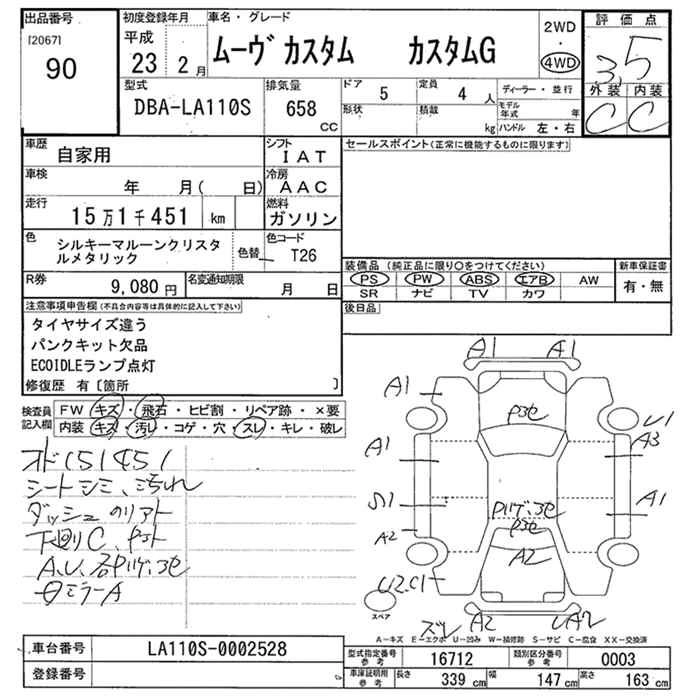 出品番号
[2067]
90
初度登録年月
平成
23 2月
車名・グレード
ムーヴ カスタム カスタムG
2WD
・
4WD
評価点
3.5
外装 内装
C C
型式
DBA-LA110S
排気量
658
cc
ドア
5
定員
4 人
形状
積載
kg
ディーラー・並行
モデル年式 年
ハンドル 左・右
車歴
自家用
シフト
IAT
車検
年 月( 日)
冷房
AAC
走行
15万1千451 km
燃料
ガソリン
色
シルキーマルーンクリスタルメタリック
色替
色コード
T26
R券
9,080 円
名変通知期限
月 日
セールスポイント(正常に機能するものに限ります)
装備品 (純正品に限り○をつけてください)
PS PW ABS エアB AW
SR ナビ TV カワ
新車保証書
有・無
後日品
注意事項申告欄(不具合内容等は具体的に記入して下さい)
タイヤサイズ違う
パンクキット欠品
ECOIDLEランプ点灯
修復歴 有〔箇所 〕
検査員記入欄
FW キズ・飛石・ヒビ割・リペア跡・×要
内装 キズ・汚レ・コゲ・穴・スレ・キレ・破レ
オド151451
シートシミ、汚れ
ダッシュ のリアト
下廻りC、
A、U、
ミラーA
A1 A1
A1
U1
A1
A3
A1
A2
A2
U2.C1
A2
UA2
ズレ
スペア
A−キズ E−エクボ U−凹み W−補修跡 S−サビ C−腐食 XX−交換済
車台番号
LA110S-0002528
登録番号
型式指定番号 参考
16712
類別区分番号 参考
0003
車庫証明用 参考
長さ 339 cm
幅 147 cm
高さ 163 cm